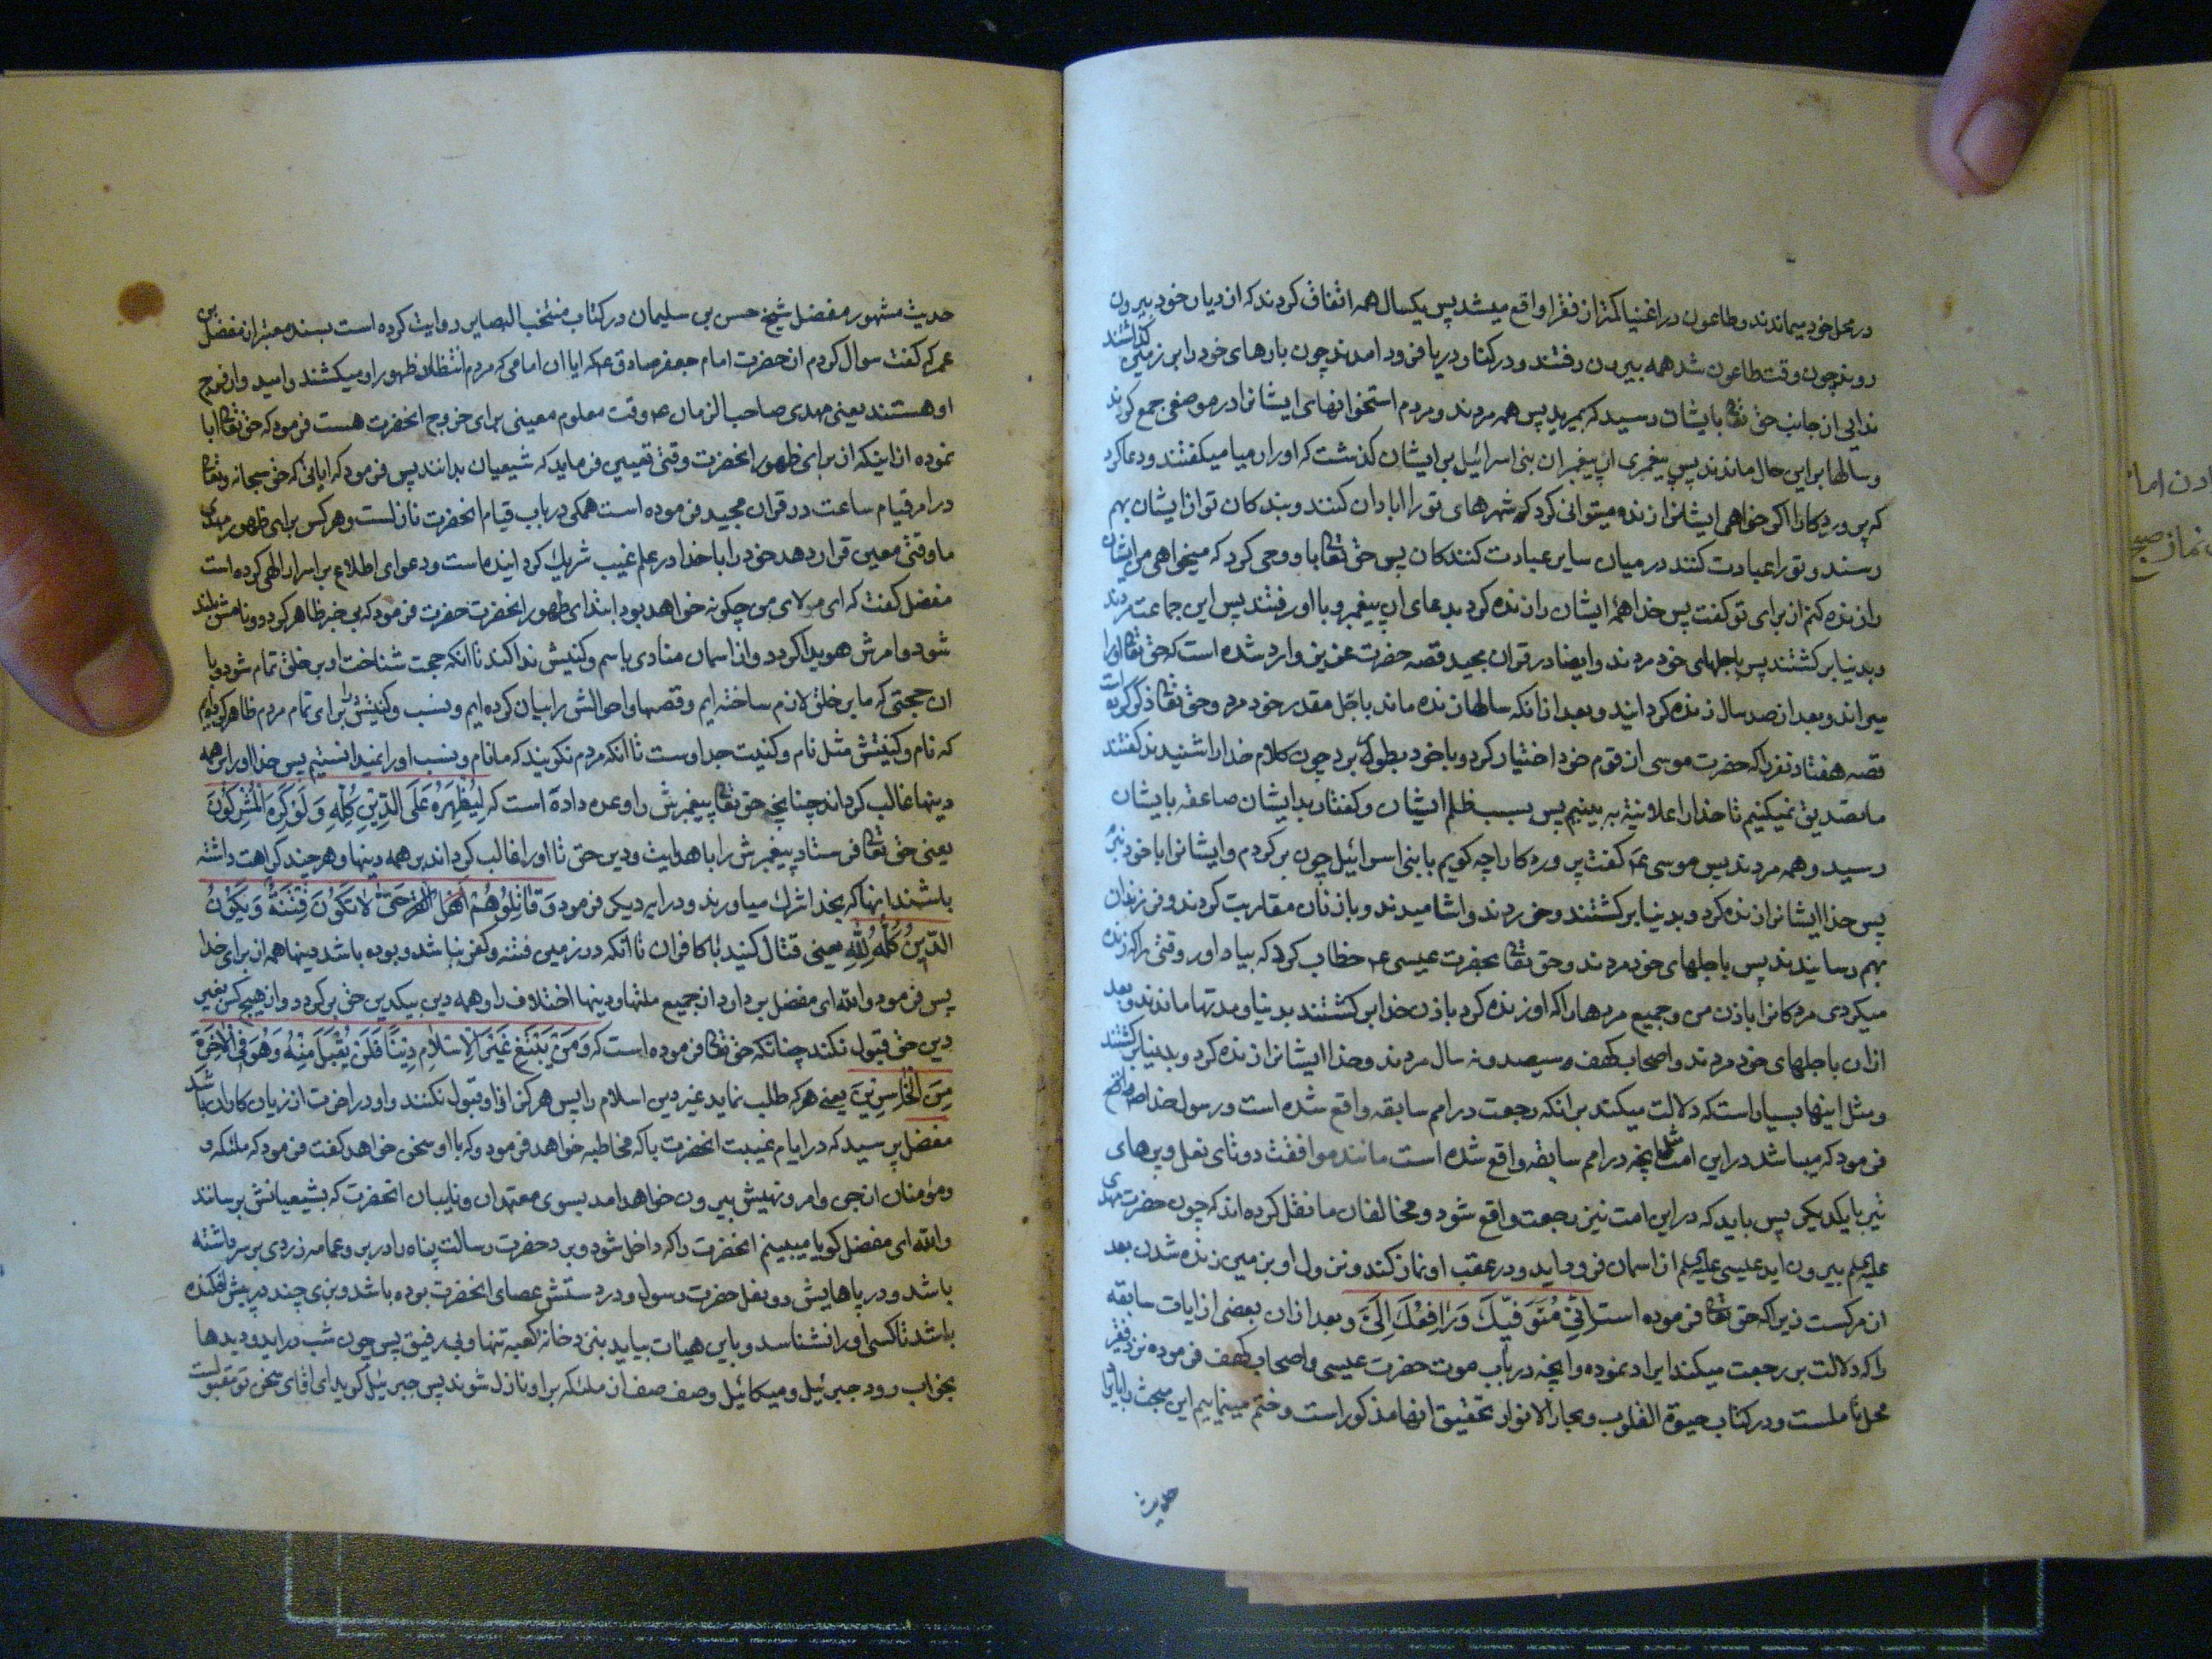 در محل خود میماندند و طاعون در اغنیا کمتر از فقرا واقع میشد پس یکسال همه اتفاق کردند که از دیار خود بیرون
روند چون وقت طاعون شد همه بیرون رفتند و در کنار دریا فرود امدند چون بارهای خود را بر زمین کذاشتند
ندایی از جانب حق تعالی بایشان رسید که بمیرید پس همه مردند و مردم استخوانهای ایشانرا در موضعی جمع کردند
و سالها بر این حال ماندند پس پیغمبری از پیغمبران بنی اسرائیل بر ایشان کذشت که او را ارمیا میکفتند و دعا کرد
که پروردکارا اکر خواهی ایشانرا زنده میتوانی کرد که شهرهای تو را ابادان کنند و بندکان تو از ایشان بهم
رسند و تو را عبادت کنند در میان سایر عبادت کنندکان پس حق تعالی باو وحی کرد که میخواهی من ایشان
را زنده کنم از برای تو کفت پس خدا همهٔ ایشان را زنده کرد بدعای ان پیغمبر و با او رفتند پس این جماعت مردند
و بدنیا برکشتند پس باجلهای خود مردند و ایضا در قران مجید قصه حضرت عزیر وارد شده است که حق تعالی او را
میراند و بعد از صد سال زنده کردانید و بعد از انکه سالها زنده ماند باجل مقدر خود مرد و حق تعالی ذکر کرده است
قصه هفتاد نفر را که حضرت موسی از قوم خود اختیار کرد و با خود بطور برد چون کلام خدا را شنیدند کفتند
ما تصدیق نمیکنیم تا خدا را علانیة به بینیم پس بسبب ظلم ایشان و کفتار بد ایشان صاعقه بایشان
رسید و همه مردند پس موسی عم کفت پروردکارا چه کویم با بنی اسرائیل چون برکردم و ایشانرا با خود نبرم
پس خدا ایشانرا زنده کرد و بدنیا برکشتند و خوردند و اشامیدند و با زنان مقاربت کردند و فرزندان
بهم رسانیدند پس باجلهای خود مردند و حق تعالی بحضرت عیسی ع خطاب کرد که بیاد اور وقتی را که زنده
میکردی مردکانرا باذن من و جمیع مردها را که او زنده کرد باذن خدا برکشتند بدنیا و مدتها ماندند و بعد
ازان باجلهای خود مردند و اصحاب کهف سیصد و نه سال مردند و خدا ایشانرا زنده کرد و بدنیا برکشتند
و مثل اینها بسیار است که دلالت میکند بر انکه رجعت در امم سابقه واقع شده است و رسول خدا
فرمود که میباشد در این امت مثل انچه در امم سابقه واقع شده است مانند موافقت دو تای نعل و پرهای
تیر با یکدیکر پس باید که در این امت نیز رجعت واقع شود و مخالفان ما نقل کرده اند که چون حضرت مهدی
علیه السلم بیرون اید عیسی علیه السلم از اسمان فرود اید و در عقب او نماز کند و نزول او بزمین زنده شدن بعد
از مرکست زیرا که حق تعالی فرموده است اِنّی مُتَوَفّیکَ وَرَافِعُکَ اِلَیَّ و بعد ازان بعضی از ایات سابقه
را که دلالت بر رجعت میکند ایراد نموده و انچه در باب موت حضرت عیسی و اصحاب کهف فرموده نزد فقیر
محل تاملست و در کتاب حیوة القلوب و بحار الانوار تحقیق انها مذکور است و ختم مینماییم این مبحث را بایراد
حدیث
حدیث مشهور مفضل شیخ حسن بن سلیمان در کتاب منتخب البصایر روایت کرده است بسند معتبر از مفضل بن
عمر که کفت سوال کردم از حضرت امام جعفر صادق ع که ایا ان امامی که مردم انتظار ظهور او میکشند و امید وار فرج
او هستند یعنی مهدی صاحب الزمان ع وقت معلوم معینی برای خروج انحضرت هست فرمود که حق تعالی ابا
نموده از اینکه از برای ظهور انحضرت وقتی تعیین فرماید که شیعیان بدانند پس فرمود که ایاتی که حق سبحانه و تعالی
در امر قیام ساعت در قران مجید فرموده است همکی در باب قیام انحضرت نازلست و هر کس برای ظهور مهدی
ما وقتی معین قرار دهد خود را با خدا در علم غیب شریک کردانیده است و دعوای اطلاع بر اسرار الهی کرده است
مفضل کفت که ای مولای من چکونه خواهد بود ابتدای ظهور انحضرت حضرت فرمود که بی خبر ظاهر کردد و نامش بلند
شود و امرش هویدا کردد و از اسمان منادی باسم و کنیتش ندا کند تا انکه حجت شناخت او بر خلق تمام شود با
ان حجتی که ما بر خلق لازم ساخته ایم و قصها و احوالش را بیان کرده ایم و نسب و کنیتش را برای تمام مردم ظاهر کرده ایم
که نام و کنیتش مثل نام و کنیت جد اوست تا انکه مردم نکویند که ما نام و نسب او را نمیدانستیم پس خدا او را بر همه
دینها غالب کرداند چنانچه حق تعالی پیغمبرش را وعده داده است که لِیُظهِرَهُ عَلَی الدِّینِ کُلِّهِ وَ لَو کَرِهَ المُشرِکُونَ
یعنی حق تعالی فرستاد پیغمبرش را با هدایت و دین حق تا او را غالب کرداند بر همه دینها و هر چند کراهت داشته
باشند انها که بخدا شرک میاورند و در ایهٔ دیکر فرمود وَ قَاتِلُوهُم حَتّی لاتَکُونَ فِتنَةٌ وَ یَکُونُ
الدّینُ کُلُّهُ لِلّهِ یعنی قتال کنید با کافران تا انکه در زمین فتنه و کفر نباشد و بوده باشد دینها همه از برای خدا
پس فرمود والله ای مفضل بردارد از جمیع ملتها و دینها اختلاف را و همه دین بیکدین حق برکردد و از هیچ کس بغیر
دین حق قبول نکند چنانکه حق تعالی فرموده است که وَ مَن یَبتَغِ غَیرَ الاِسلامِ دِیناً فَلَن یُقبَلَ مِنهُ وَ هُوَ فِی الاخِرَةِ
مِنَ الخَاسِرِینَ یعنی هر که طلب نماید غیر دین اسلام را پس هرکز از او قبول نکنند و او در اخرت از زیان کاران باشد
مفضل پرسید که در ایام غیبت انحضرت با که مخاطبه خواهد فرمود و که با او سخن خواهد کفت فرمود که ملئکه و
و مومنان از جن و امر و نهیش بیرون خواهد امد بسوی معتمدان و نایبان انحضرت که بشیعیانش برسانند
والله ای مفضل کویا میبینم انحضرت را که داخل شود و برد حضرت رسالت پناه را در بر و عمامه زردی بر سر داشته
باشد و در پاهایش دو نعل حضرت رسول و در دستش عصای انحضرت بوده باشد و بزی چند در پیش افکنده
باشد تا کسی او را نشناسد و باین هیئات بیاید بنزد خانه کعبه تنها و بی رفیق پس چون شب در اید و دیدها
بخواب رود جبرئیل و میکائیل و صف صف از ملئکه بر او نازل شوند پس جبرئیل کوید ای اقای من سخن تو مقبولست